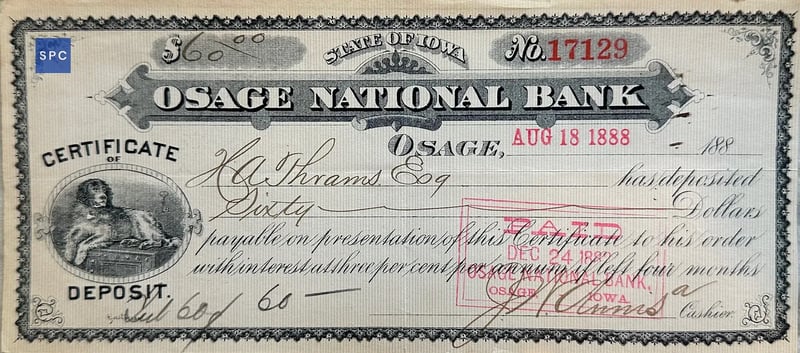 SPC
$60.00
STATE OF IOWA
No. 17129
OSAGE NATIONAL BANK
OSAGE, AUG 18 1888 188
CERTIFICATE
OF
DEPOSIT.
H A Thrams Esq has deposited
Sixty Dollars
payable on presentation of this Certificate to his order
with interest at three per cent per annum if left four months
PAID
DEC 24 188
OSAGE NATIONAL BANK,
OSAGE, IOWA
60 60 —
Cashier.